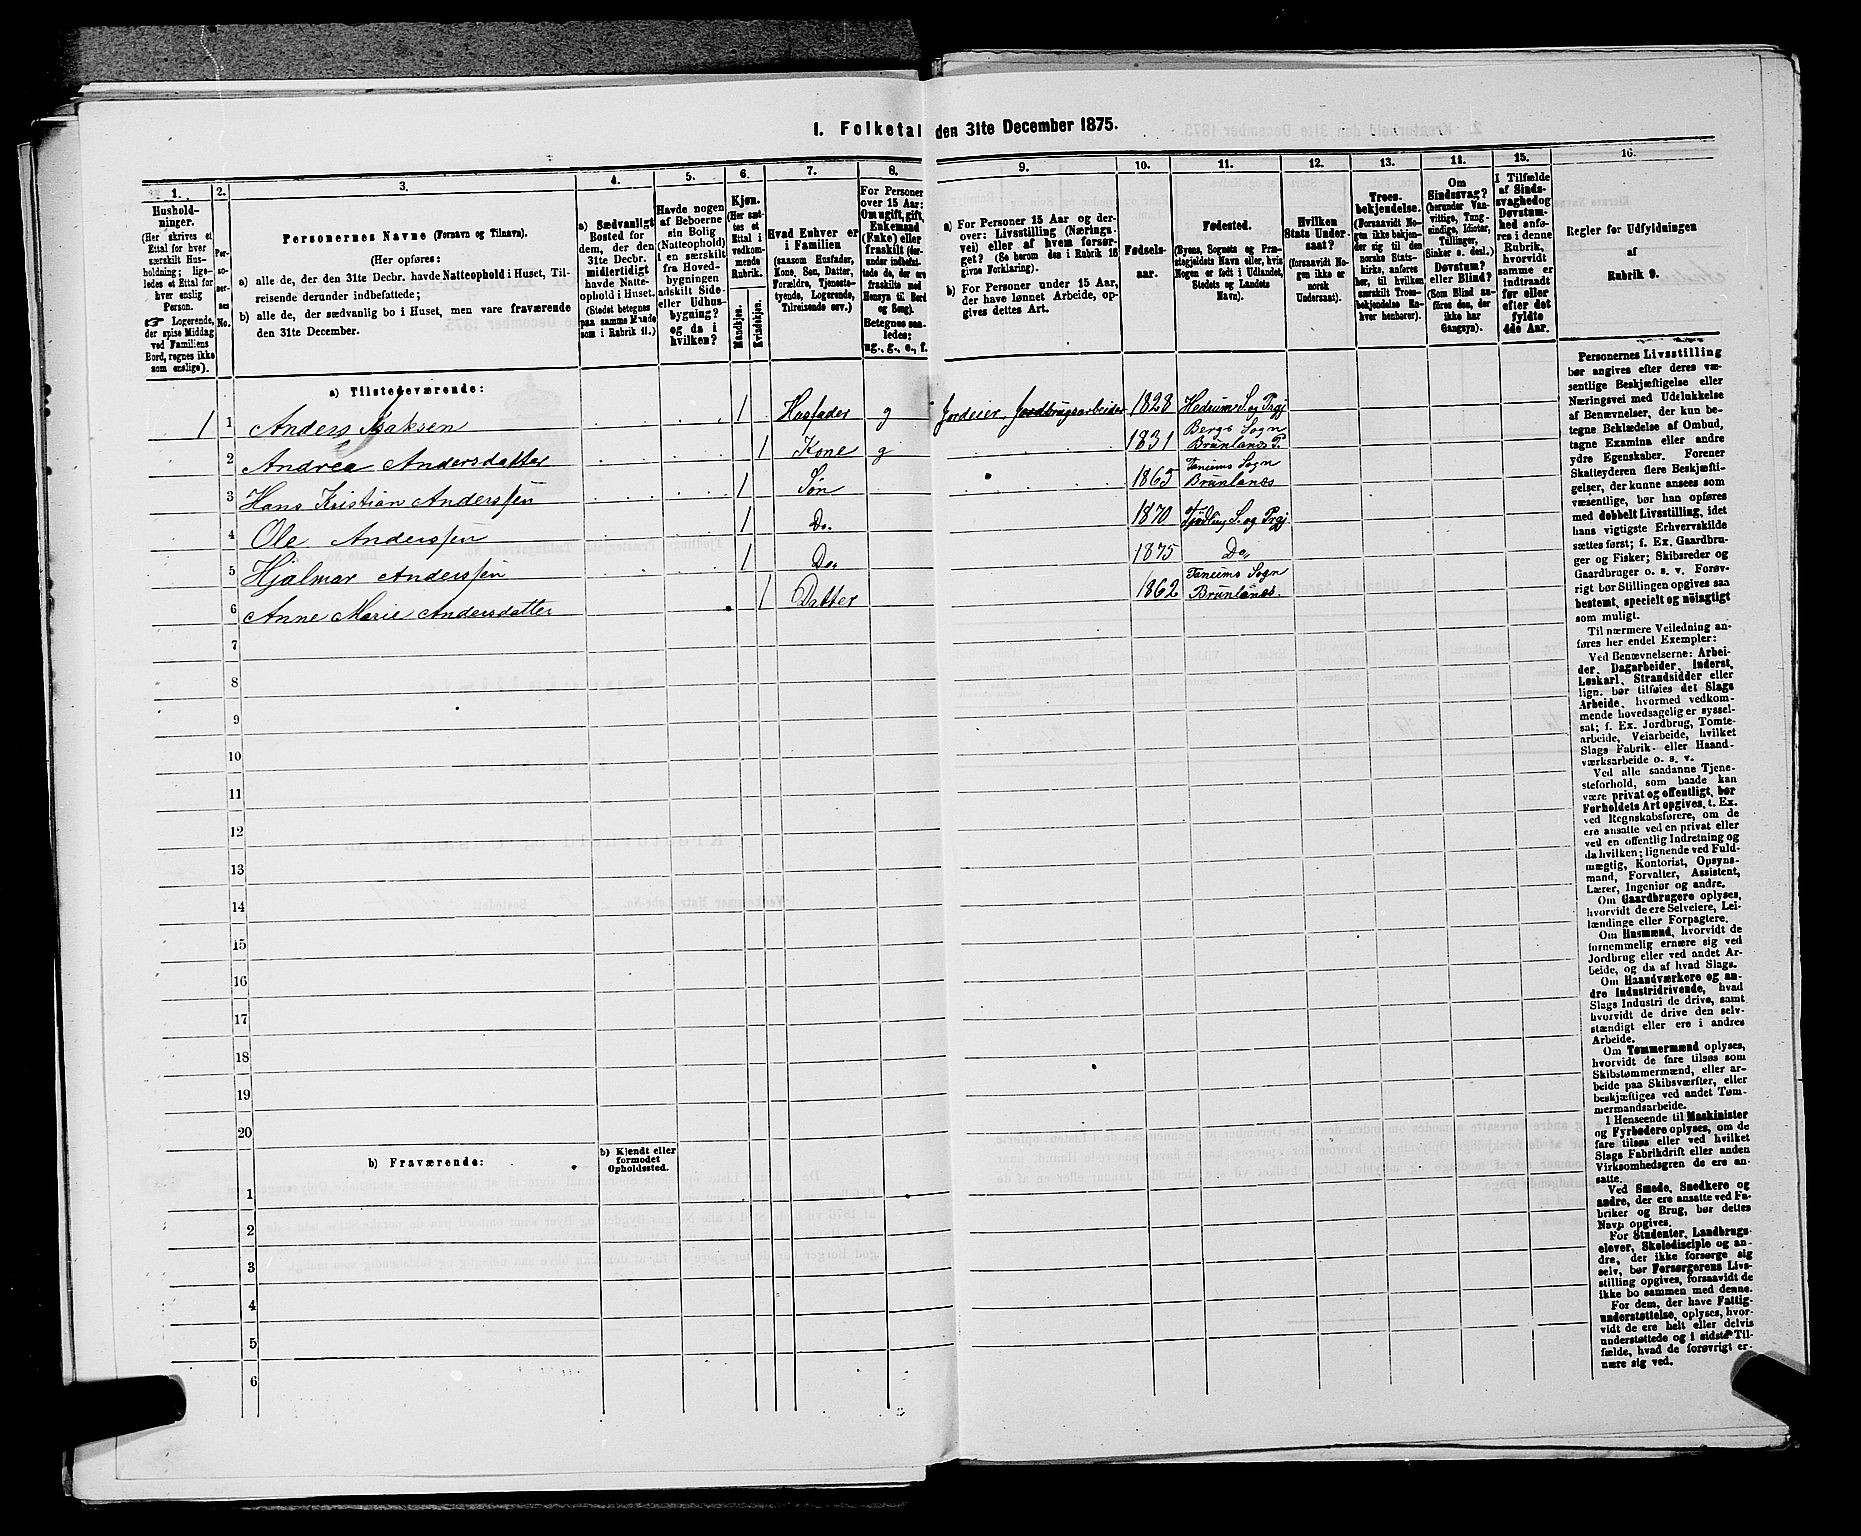 1. Folketal den 31te December 1875.
1. 2. 3. 4. 5. 6. 7. 8. 9. 10. 11. 12. 13. 14. 15. 16.
Hushold-
ninger.
(Her skrives et
Ettal for hver
særskilt Hus-
holdning; lige-
ledes et Ettal for
hver enslig
Person.
☞ Logerende,
der spise Middag
ved Familiens
Bord, regnes ikke
som enslige).
Per-
so-
ner-
nes
No.
Personernes Navne (Fornavn og Tilnavn).
(Her opføres:
a) alle de, der den 31te Decbr. havde Natteophold i Huset, Til-
reisende derunder indbefattede;
b) alle de, der sædvanlig bo i Huset, men vare fraværende
den 31te December.
a) Sædvanligt
Bosted for
dem, der den
31te Decbr.
midlertidigt
havde Natte-
ophold i Huset.
(Stedet betegnes
paa samme Maade
som i Rubrik 11.)
Havde nogen
af Beboerne
sin Bolig
(Natteophold)
i en særskilt
fra Hoved-
bygningen
adskilt Side-
eller Udhus-
bygning?
og da i
hvilken?
Kjøn.
(Her sæt-
tes et
Ettal i
vedkom-
mende
Rubrik.
Mandkjøn.
Kvindekjøn.
Hvad Enhver er
i Familien
(saasom Husfader,
Kone, Søn, Datter,
Forældre, Tjeneste-
tyende, Logerende,
Tilreisende osv.)
For Personer
over 15 Aar:
Om ugift, gift,
Enkemand
(Enke) eller
fraskilt (der-
under indbefat-
tede de, der ere
fraskilte med
Hensyn til Bord
og Seng).
Betegnes saa-
ledes:
ug., g., e., f.
a) For Personer 15 Aar og der-
over: Livsstilling (Nærings-
vei) eller af hvem forsør-
get? (Se herom des i Rubrik 16
givne Forklaring).
b) For Personer under 15 Aar,
der have lønnet Arbeide, op-
gives dettes Art.
Fødsels-
aar.
Fødested.
(Byens, Sognets og Præ-
stegjeldets Navn eller, hvis
Nogen er født i Udlandet,
Stedets og Landets
Navn).
Hvilken
Stats Under-
saat?
(forsaavidt No-
gen ikke er
norsk
Undersaat).
Troes-
bekjendelse.
(Forsaavidt No-
gen ikke bekjen-
der sig til den
norske Stats-
kirke, anføres
her, til hvilken
særskilt Troes-
bekjendelse En-
hver henhører).
Om
Sindssvag?
(herunder Van-
vittige, Tung-
sindige, Idioter,
Tullinger,
Sinker o. desl.)
Døvstum?
eller Blind?
(Som Blind an-
føres den, der
ikke har
Gangsyn).
I Tilfælde
af Sinds-
svaghed og
Døvstum-
hed anfø-
res i denne
Rubrik,
hvorvidt
samme er
indtraadt
før eller
efter det
fyldte
4de Aar.
Regler for Udfyldningen
af
Rubrik 9.
a) Tilstedeværende:
1 1 Anders Isaksen 1 Husfader g Jordeier, Jordbrugsarbeider 1828 Hedrums S. og Prgj
2 Andrea Andersdatter 1 Kone g 1831 Bergs Sogn
Brunlanæs P.
3 Hans Kristian Anderssen 1 Søn 1865 Tanums Sogn
Brunlanæs
4 Ole Anderssen 1 Do. 1870 Tjødling S. og Prgj
5 Hjalmar Anderssen 1 Do. 1875 Do.
6 Anne Marie Andersdatter 1 Datter 1862 Tanums Sogn
Brunlanæs.
7
8
9
10
11
12
13
14
15
16
17
18
19
20
b) Fraværende:
b) Kjendt eller
formodet
Opholdssted.
1
2
3
4
5
6
Personernes Livsstilling
bør angives efter deres væ-
sentlige Beskjæftigelse eller
Næringsvei med Udelukkelse
af Benævnelser, der kun be-
tegne Beklædelse af Ombud,
tagne Examina eller andre
ydre Egenskaber. Forener
Skatteyderen flere Beskjæfti-
gelser, der kunne ansees som
væsentlige, bør han opføres
med dobbelt Livsstilling, idet
hans vigtigste Erhvervskilde
sættes først; f. Ex. Gaardbru-
ger og Fisker; Skibsreder og
Gaardbruger o. s. v. Forøv-
rigt bør Stillingen opgives saa
bestemt, specielt og nöiagtigt
som muligt.
Til nærmere Veiledning an-
føres her endel Exempler:
Ved Benævnelserne: Arbei-
der, Dagarbeider, Inderst,
Løskarl, Strandsidder eller
lign. bør tilføies det Slags
Arbeide, hvormed vedkom-
mende hovedsagelig er syssel-
sat; f. Ex. Jordbrug, Tomte-
arbeide, Veiarbeide, hvilket
Slags Fabrik- eller Haand-
værksarbeide o. s. v.
Ved alle saadanne Tjene-
steforhold, som baade kan
være privat og offentligt, bør
Forholdets Art opgives, t. Ex.
ved Regnskabsførere, om de
ere ansatte ved en privat eller
ved en offentlig Indretning og
da hvilken; lignende ved Fuld-
mægtig, Kontorist, Opsyns-
mand, Forvalter, Assistent,
Lærer, Ingeniør og andre.
Om Gaardbrugere oplyses,
hvorvidt de ere Selveiere, Lei-
lændinge eller Forpagtere.
Om Husmænd, hvorvidt de
fornemmelig ernære sig ved
Jordbrug eller ved andet Ar-
beide, og da af hvad Slags.
Om Haandværkere og an-
dre Industridrivende, hvad
Slags Industri de drive, samt
hvorvidt de drive den selv-
stændigt eller ere i andres
Arbeide.
Om Tømmermænd oplyses,
hvorvidt de fare tilsøs som
Skibstømmermænd, eller ar-
beide paa Skibsværfter, eller
beskjæftiges ved andet Tøm-
mermandsarbeide.
I Henseende til Maskinister
og Fyrbødere oplyses, om de
fare tilsøs eller ved hvilket
Slags Fabrikdrift eller anden
Virksomhedsgren de ere an-
satte.
Ved Smede, Snedkere og
andre, der ere ansatte ved Fa-
briker og Brug, bør dettes
Navn opgives.
For Studenter, Landbrugs-
elever, Skoledisciple og an-
dre, der ikke forsørge sig
selv, bør Forsørgerens Livs-
stilling opgives, forsaavidt de
ikke bo sammen med denne.
For dem, der have Fattig-
understøttelse, oplyses, hvor-
vidt de ere helt eller delvis
understøttede og i sidste Til-
fælde, hvad de forøvrigt er-
nære sig ved.